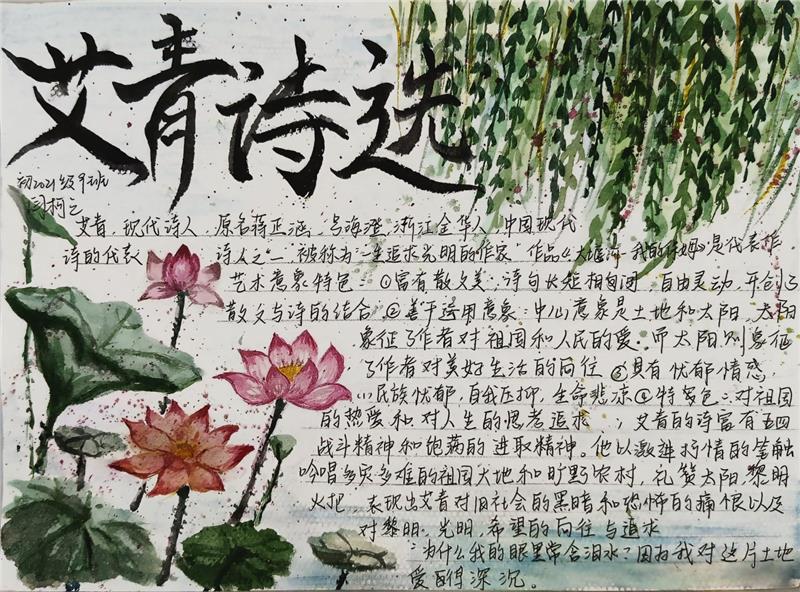 艾青诗选
初2021级9班
柯之
艾青，现代诗人，原名蒋正涵，号海澄，浙江金华人，中国现代
诗的代表诗人之一，被称为"一生追求光明的作家"作品《大堰河，我的保姆》是代表作
艺术意象特色：①富有散文美，诗句长短相间，自由灵动，开创了
散文与诗的结合 ②善于运用意象：中心意象是土地和太阳，太阳
象征了作者对祖国和人民的爱，而太阳则象征
了作者对美好生活的向往 ③具有忧郁情愁，
民族忧郁，自我压抑，生命悲凉④特色：对祖国
的热爱和对人生的思考追求；艾青的诗富有五四
战斗精神和饱满的进取精神。他以激进抒情的笔触
吟唱多灾多难的祖国大地和旷野农村，礼赞太阳，黎明
火把，表现出艾青对旧社会的黑暗和恐怖的痛恨以及
对黎明，光明，希望的向往与追求
"为什么我的眼里常含泪水？因为我对这片土地
爱得深沉。